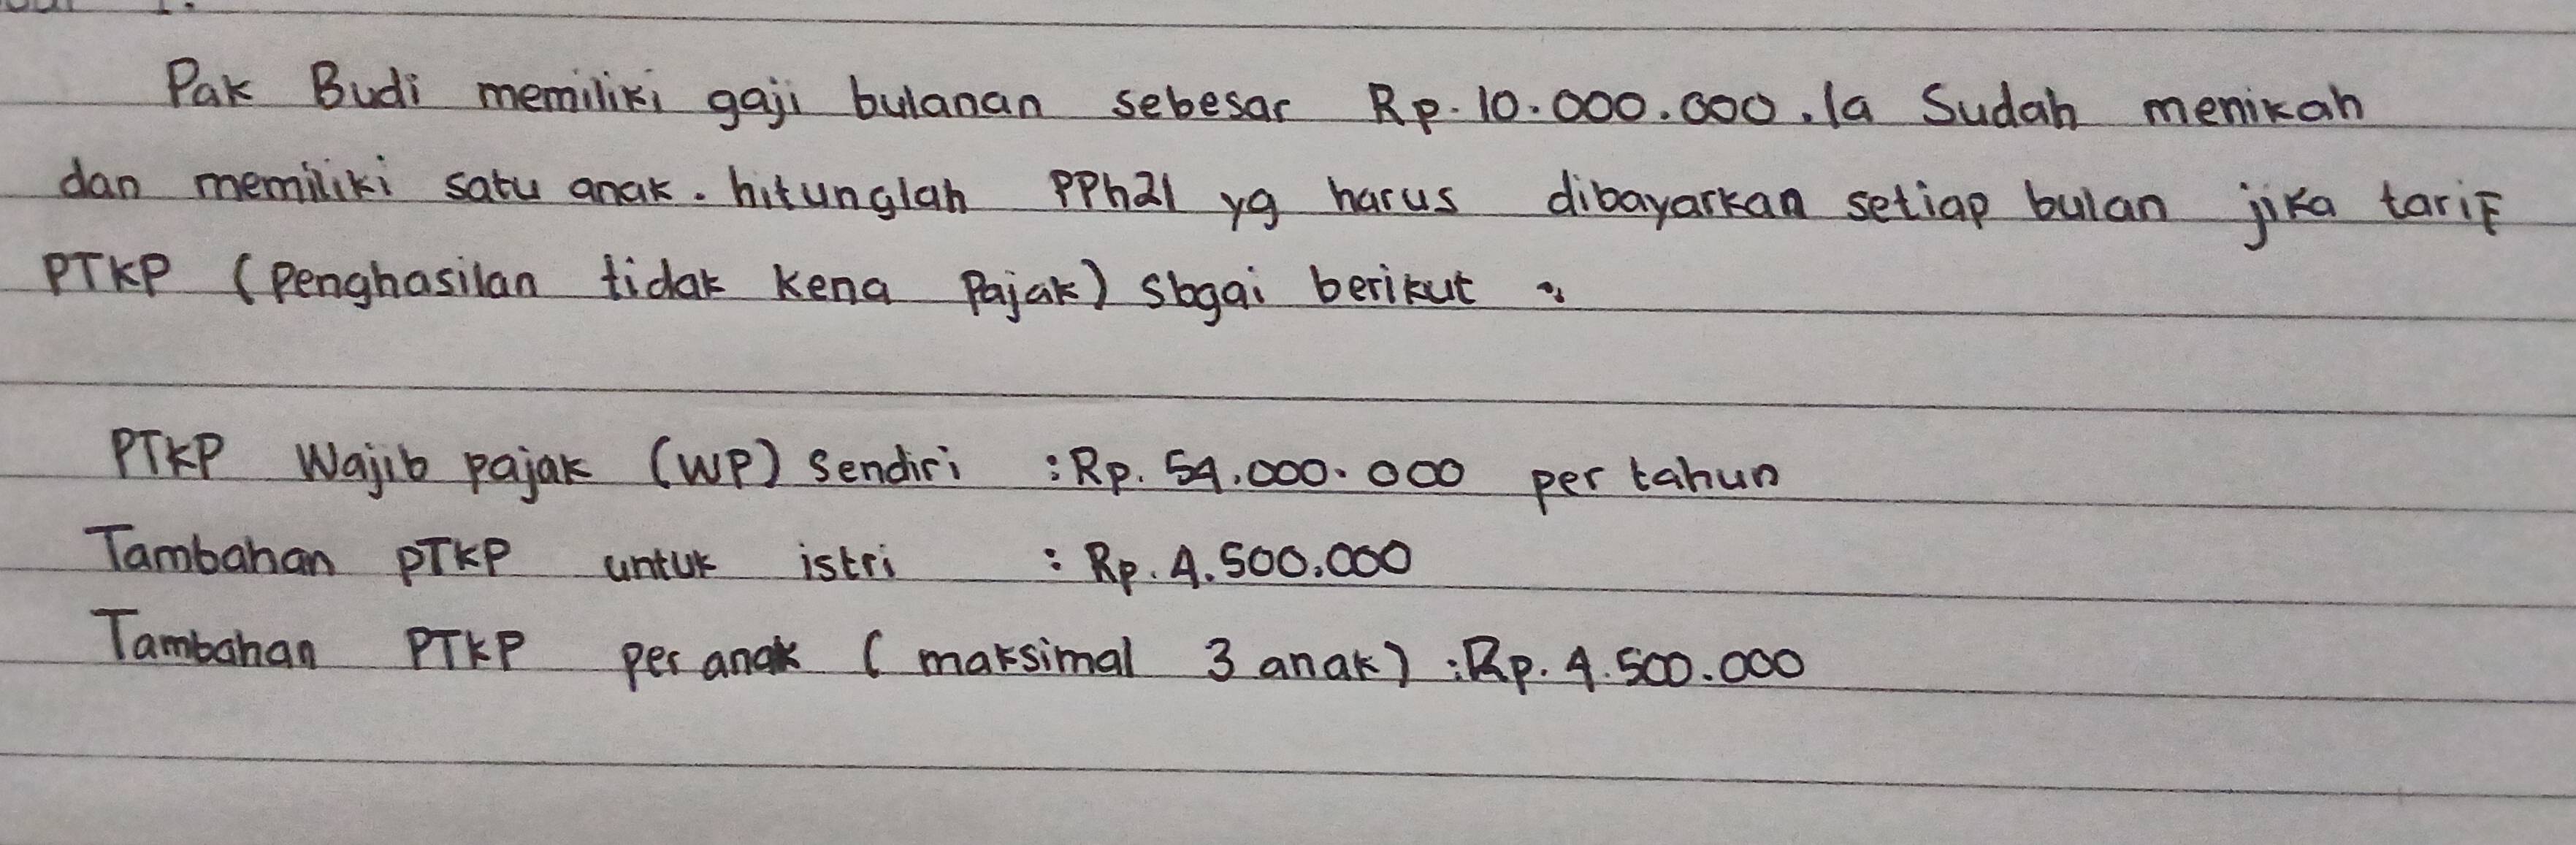 Pak Budi memiliki gaji bulanan sebesar Rp. 10.000.000. Ia Sudah menikah
dan memiliki satu anak. hitunglah PPh21 yg harus dibayarkan setiap bulan jika tarif
PTKP (Penghasilan tidak kena Pajak) sbgai berikut :
PTKP Wajib pajak (WP) Sendiri : Rp. 54.000.000 per tahun
Tambahan PTKP untuk istri : Rp. 4.500.000
Tambahan PTKP per anak (maksimal 3 anak) : Rp. 4.500.000